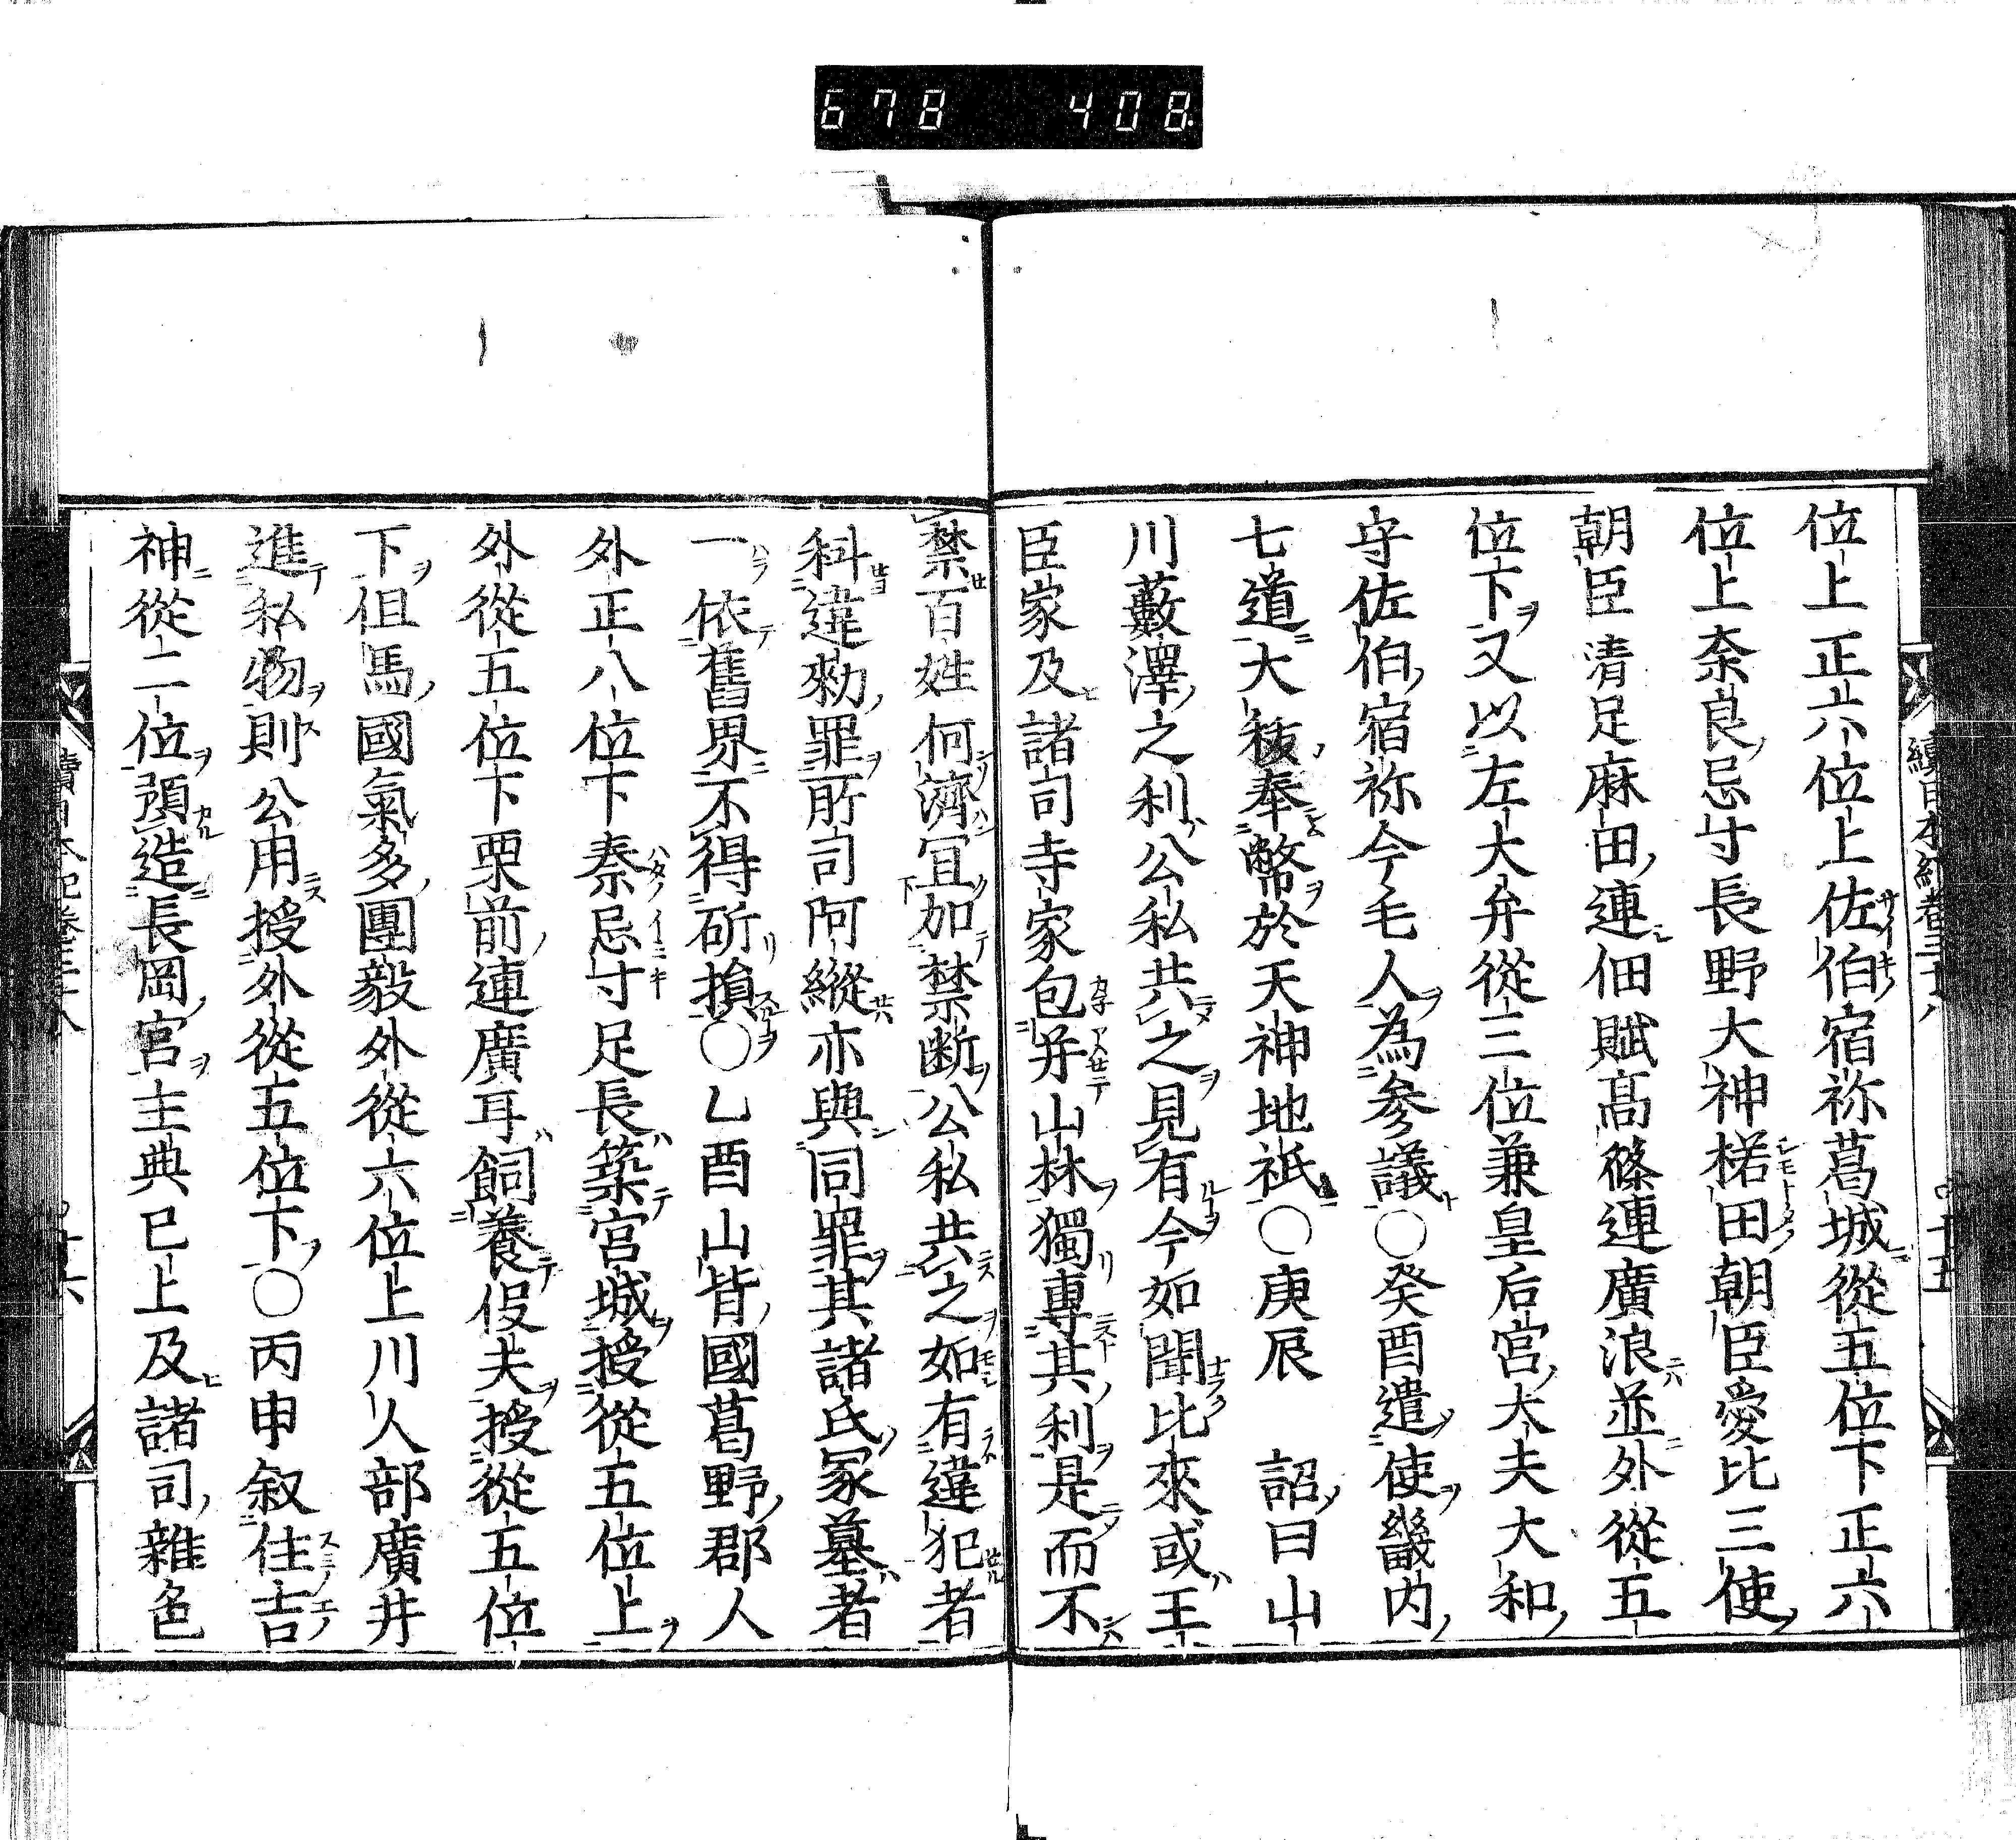 678 408
位上正六位上佐伯宿祢葛城從五位下正六
位上奈良忌寸長野大神楉田朝臣愛比三使
朝臣清足麻田連佃賦髙篠連廣浪並外從五
位下又以左大弁從三位兼皇后宮大夫大和
守佐伯宿祢今毛人為参議○癸酉遣使畿内
七道大秡奉幣於天神地祇○庚辰 詔曰山
川藪澤之利公私共之見有今如聞比來或王
臣家及諸司寺家包并山林獨專其利是而不
禁百姓何濟冝加禁断公私共之如有違犯者
科違勑罪所司阿縱亦與同罪其諸氏冢墓者
一依舊界不得斫損○乙酉山背國葛野郡人
外正八位下秦忌寸足長築宮城授從五位上
外從五位下栗前連廣耳飼養役夫授從五位
下伹馬國氣多團毅外從六位上川人部廣井
進私物則公用授外從五位下○丙申叙住吉
神從二位預造長岡宮主典已上及諸司雜色